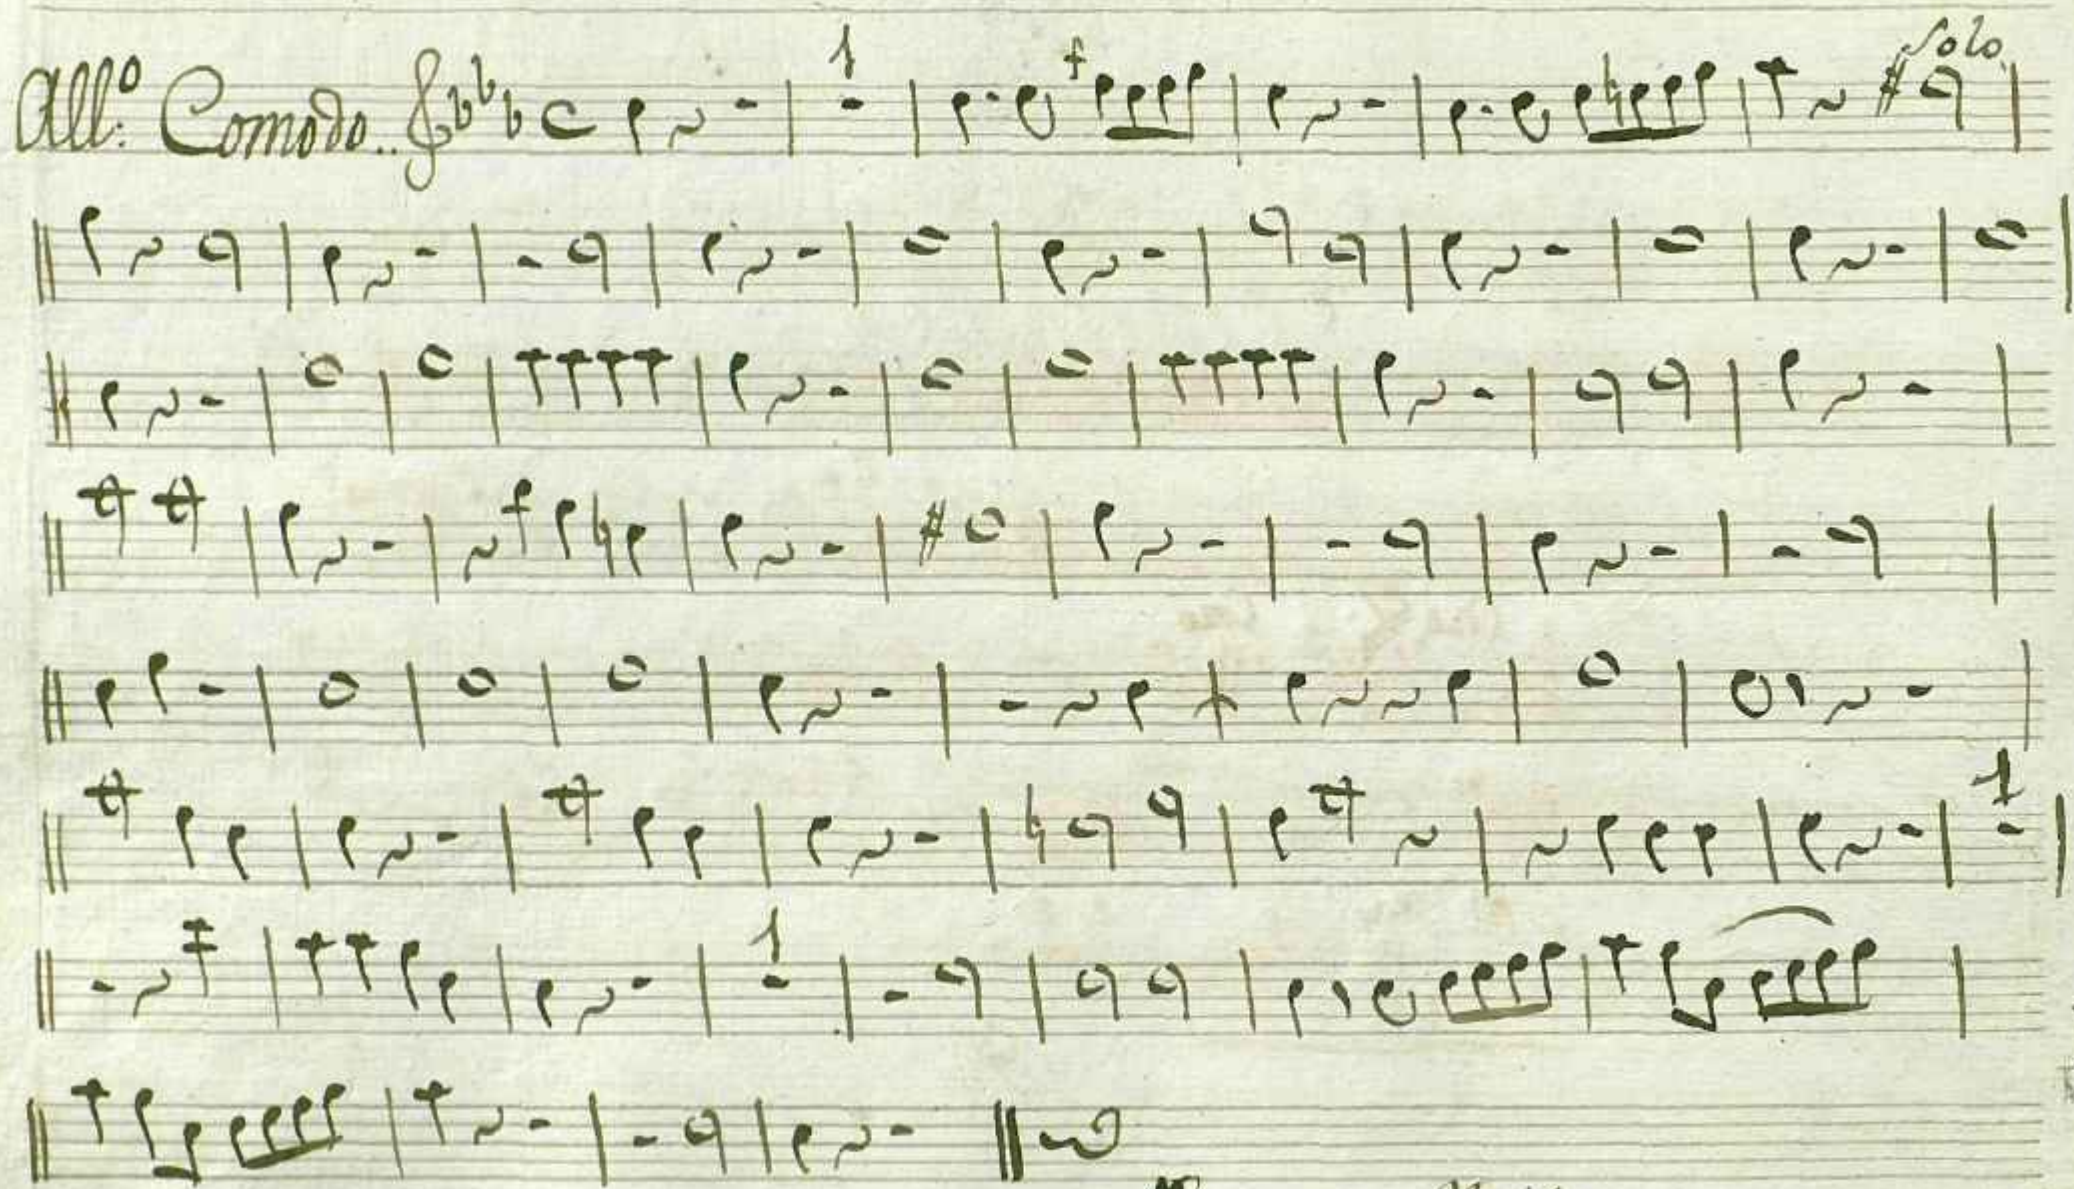 All.º Comodo.. 1 f Solo
1
1